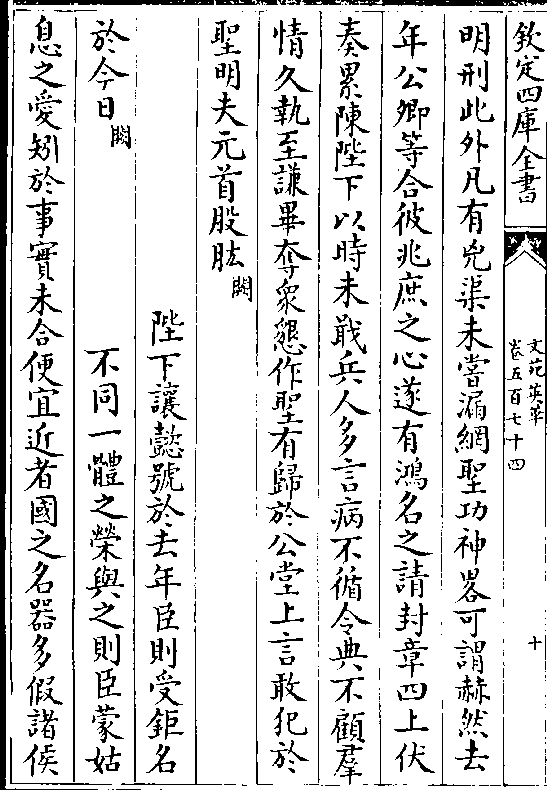 欽定四庫全書
文苑英華
卷五百七十四
十
明刑此外凡有兇渠未嘗漏網聖功神畧可謂赫然去
年公卿等合彼兆庶之心遂有鴻名之請封章四上伏
奏累陳陛下以時未戢兵人多言病不循令典不顧羣
情久執至謙畢奪衆懇作聖有歸於公堂上言敢犯於
聖明夫元首股肱闕
陛下讓懿號於去年臣則受鉅名
於今日闕　不同一體之榮與之則臣蒙姑
息之愛矧於事實未合便宜近者國之名器多假諸侯